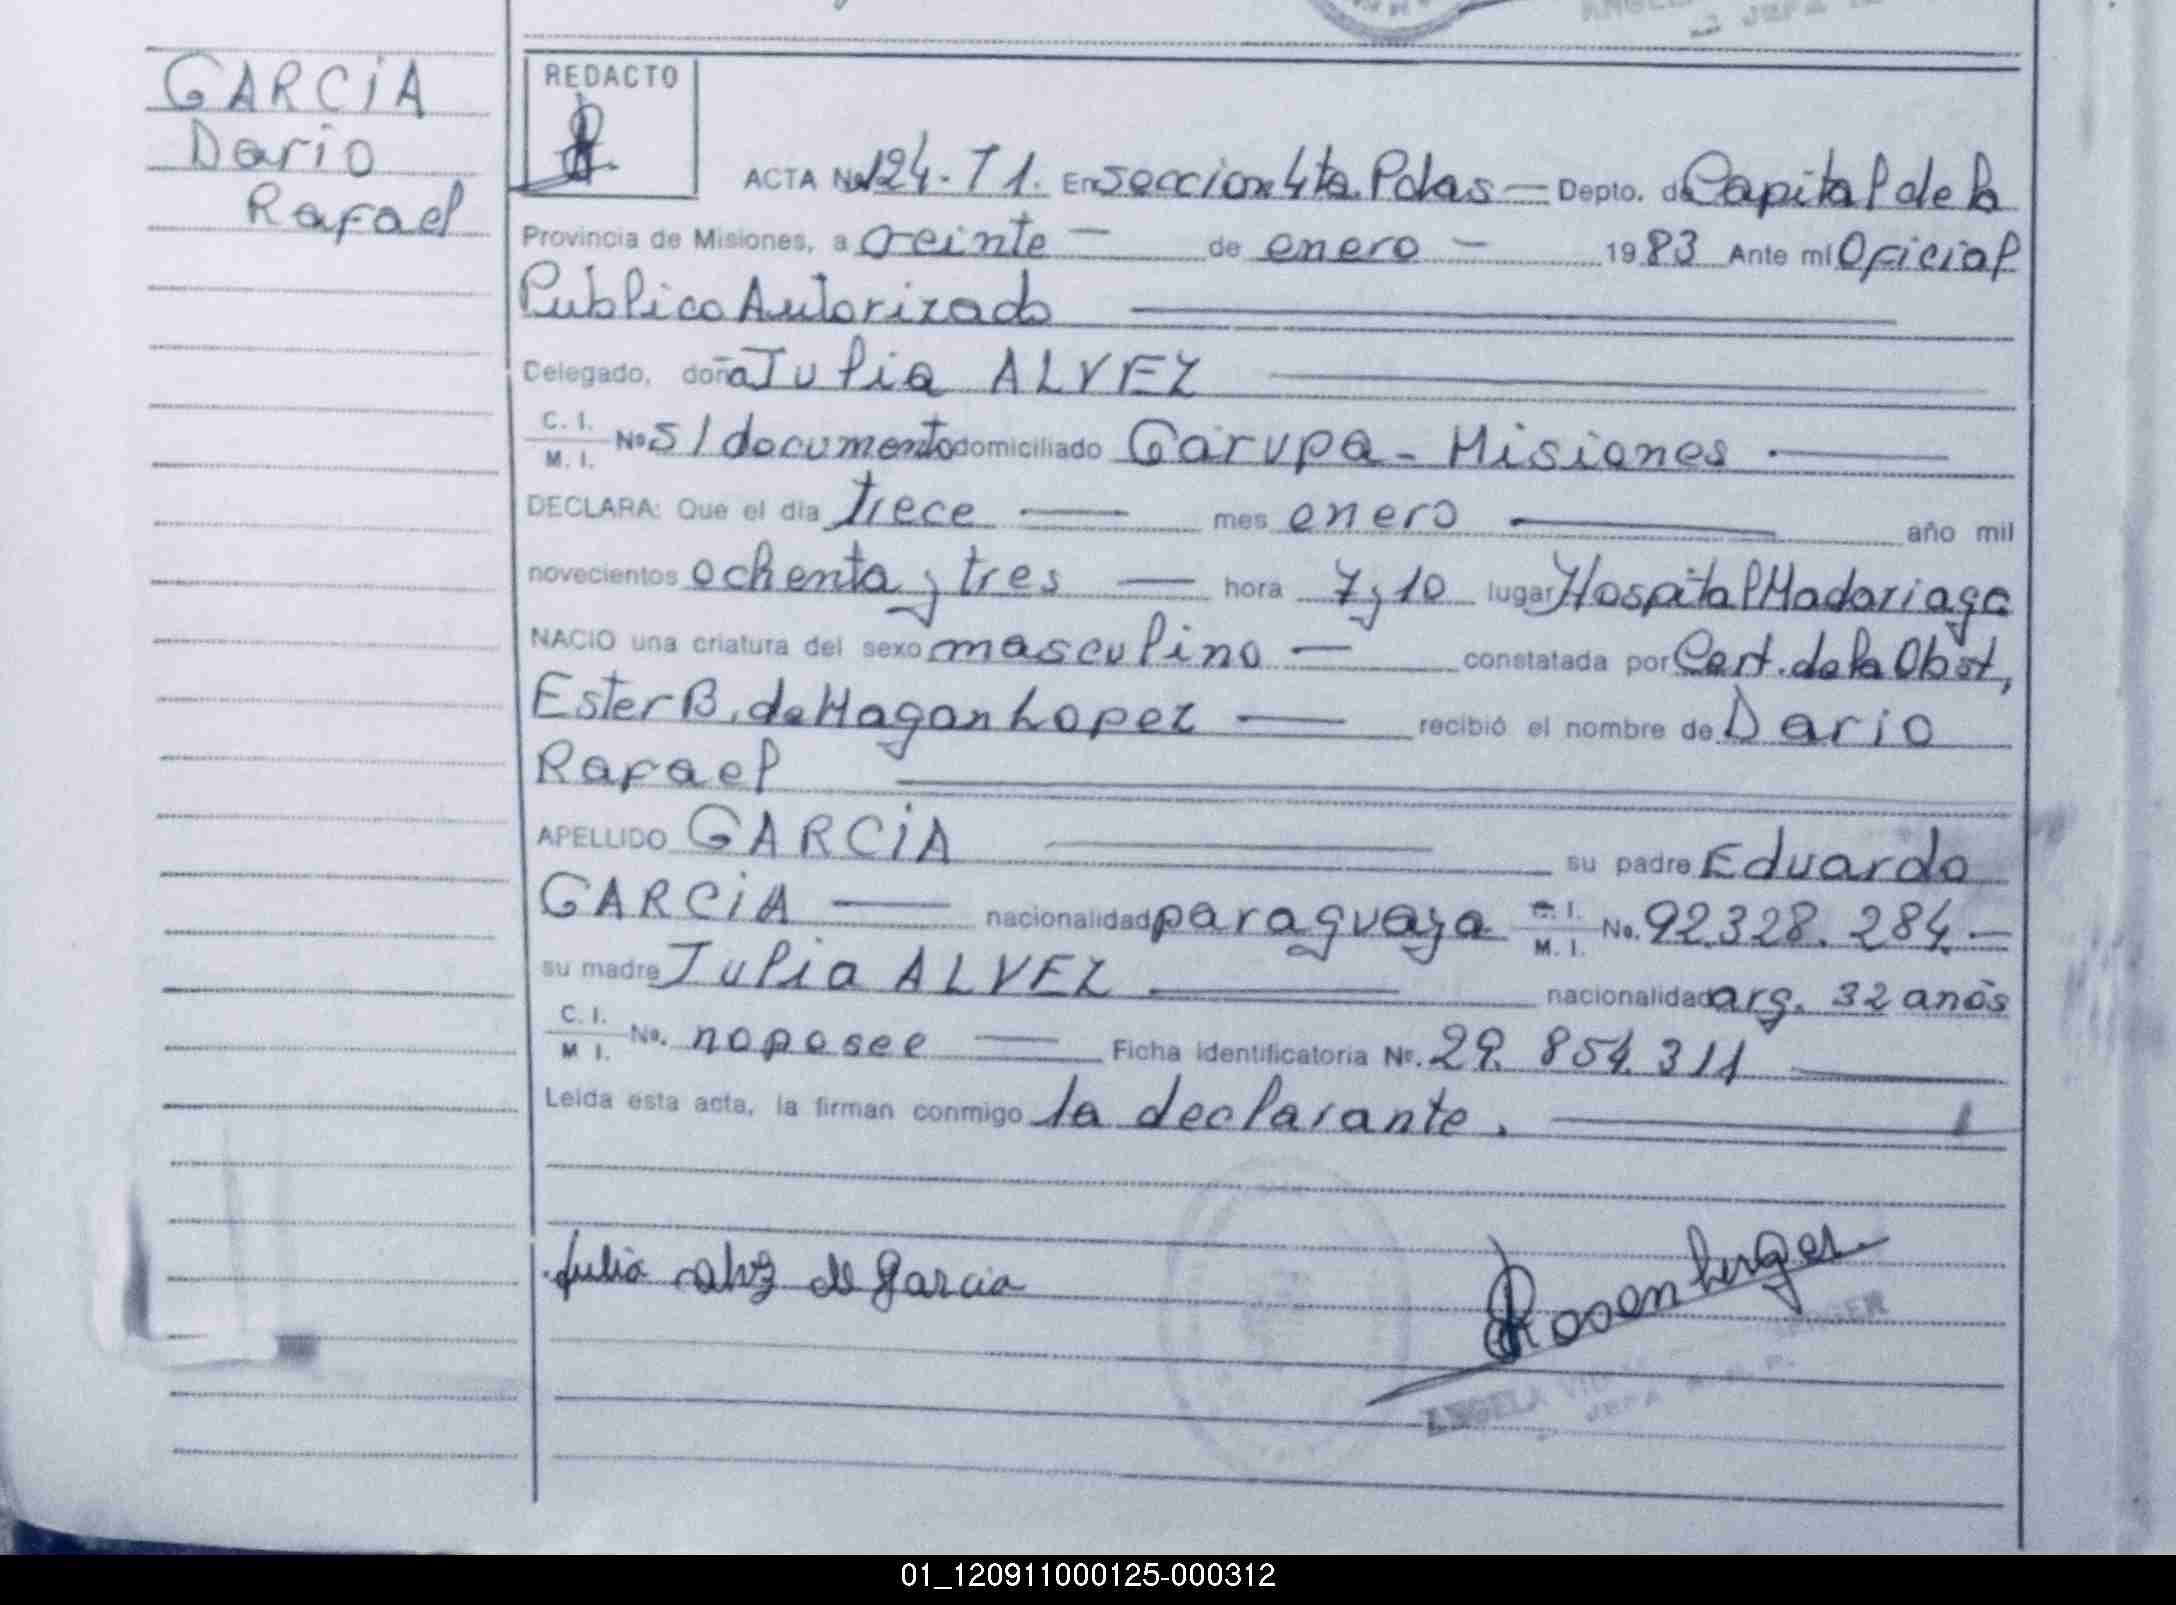 GARCÍA
Dario
Rafael
REDACTO
ACTA No 124-T1. En seccion 4ta. Pdas — Depto. de Capital de la
Provincia de Misiones, a veinte — de enero — 1983 Ante mí Oficial
Publico Autorizado
Delegado, doña Julia ALVEZ
C. I.
M. I.
No s/documento domiciliado Garupa - Misiones
DECLARA: Que el día trece — mes enero — año mil
novecientos ochenta y tres — hora 7 y 10 lugar Hospital Madariaga
NACIO una criatura del sexo masculino — constatada por Cert. de la Obst,
Ester B. de Hagan Lopez — recibió el nombre de Dario
Rafael
APELLIDO GARCÍA su padre Eduardo
GARCÍA — nacionalidad paraguaya C. I. M. I. No. 92.328.284.—
su madre Julia ALVEZ — nacionalidad arg. 32 años
C. I.
M I.
No. no posee — Ficha identificatoria No. 29.854.311
Leida esta acta, la firman conmigo la declarante.
Julia alvz de garcia
Rosenberger
ANGELA
JEFA
01_120911000125-000312